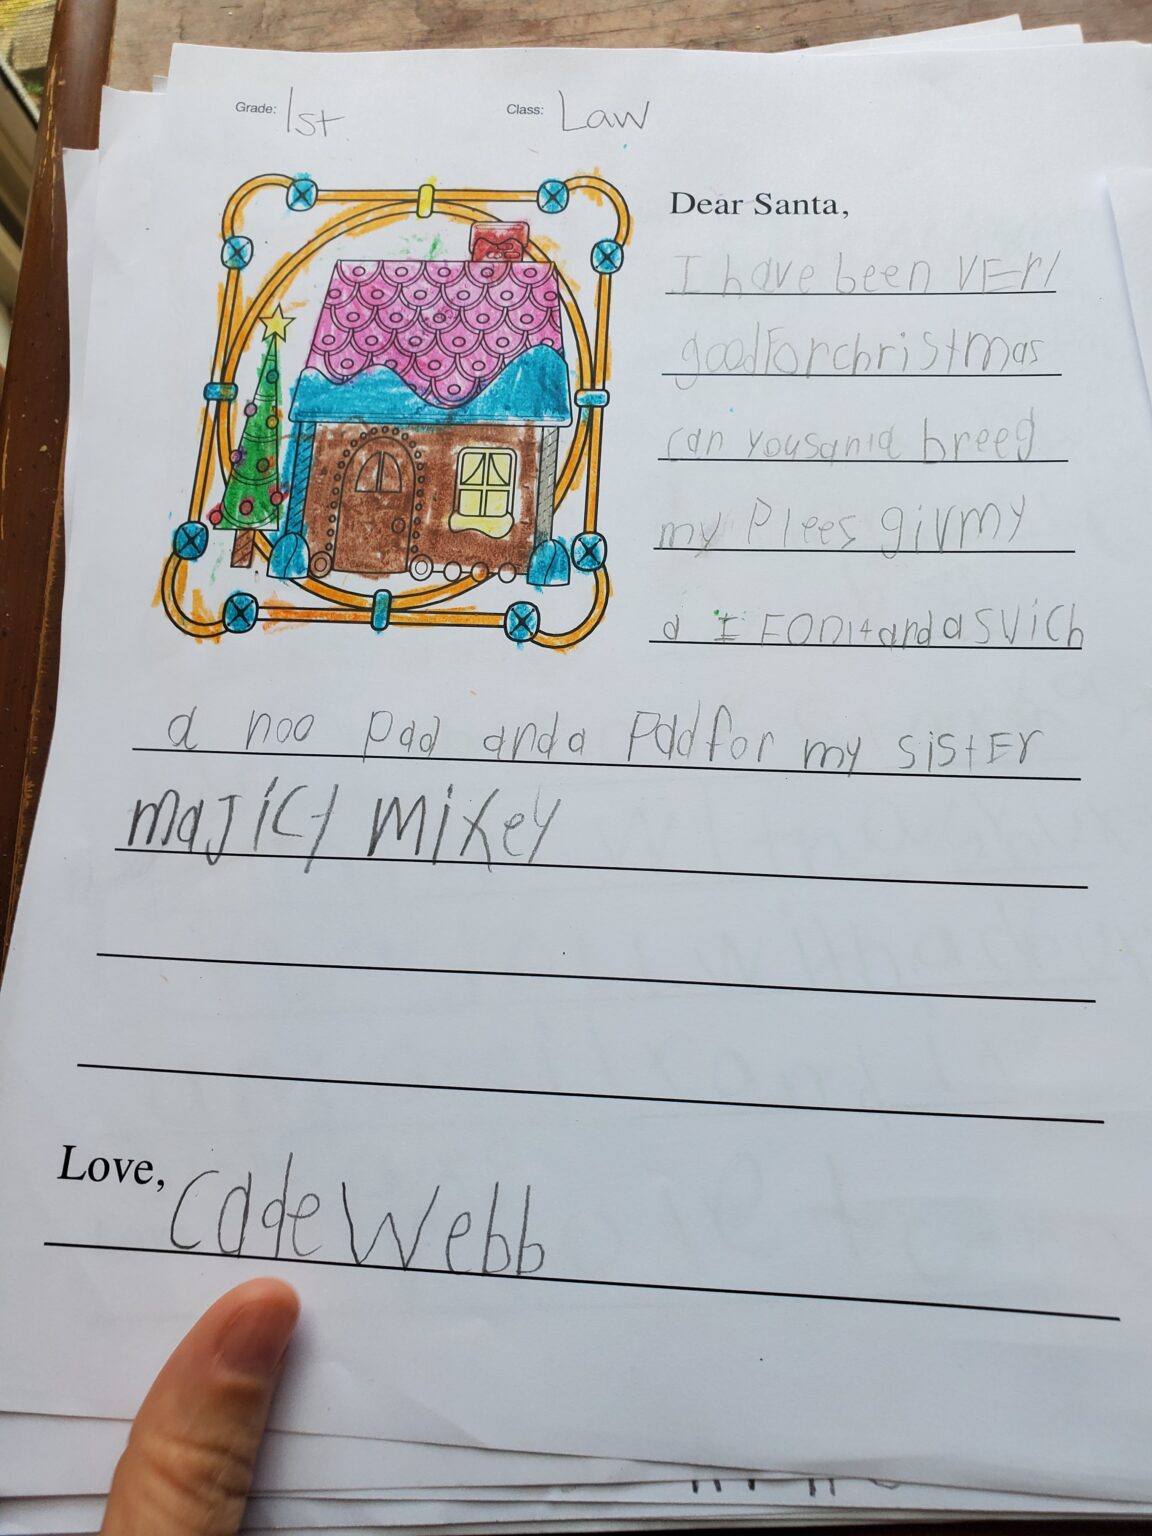 Grade: 1st
Class: Law
Dear Santa,
I have been VEry
good For christmas
can you santa breeg
my Plees giv my
a I FON 14 and a SWich
a noo Pad and a Pad for my sistEr
majict mikey
Love, Cade Webb